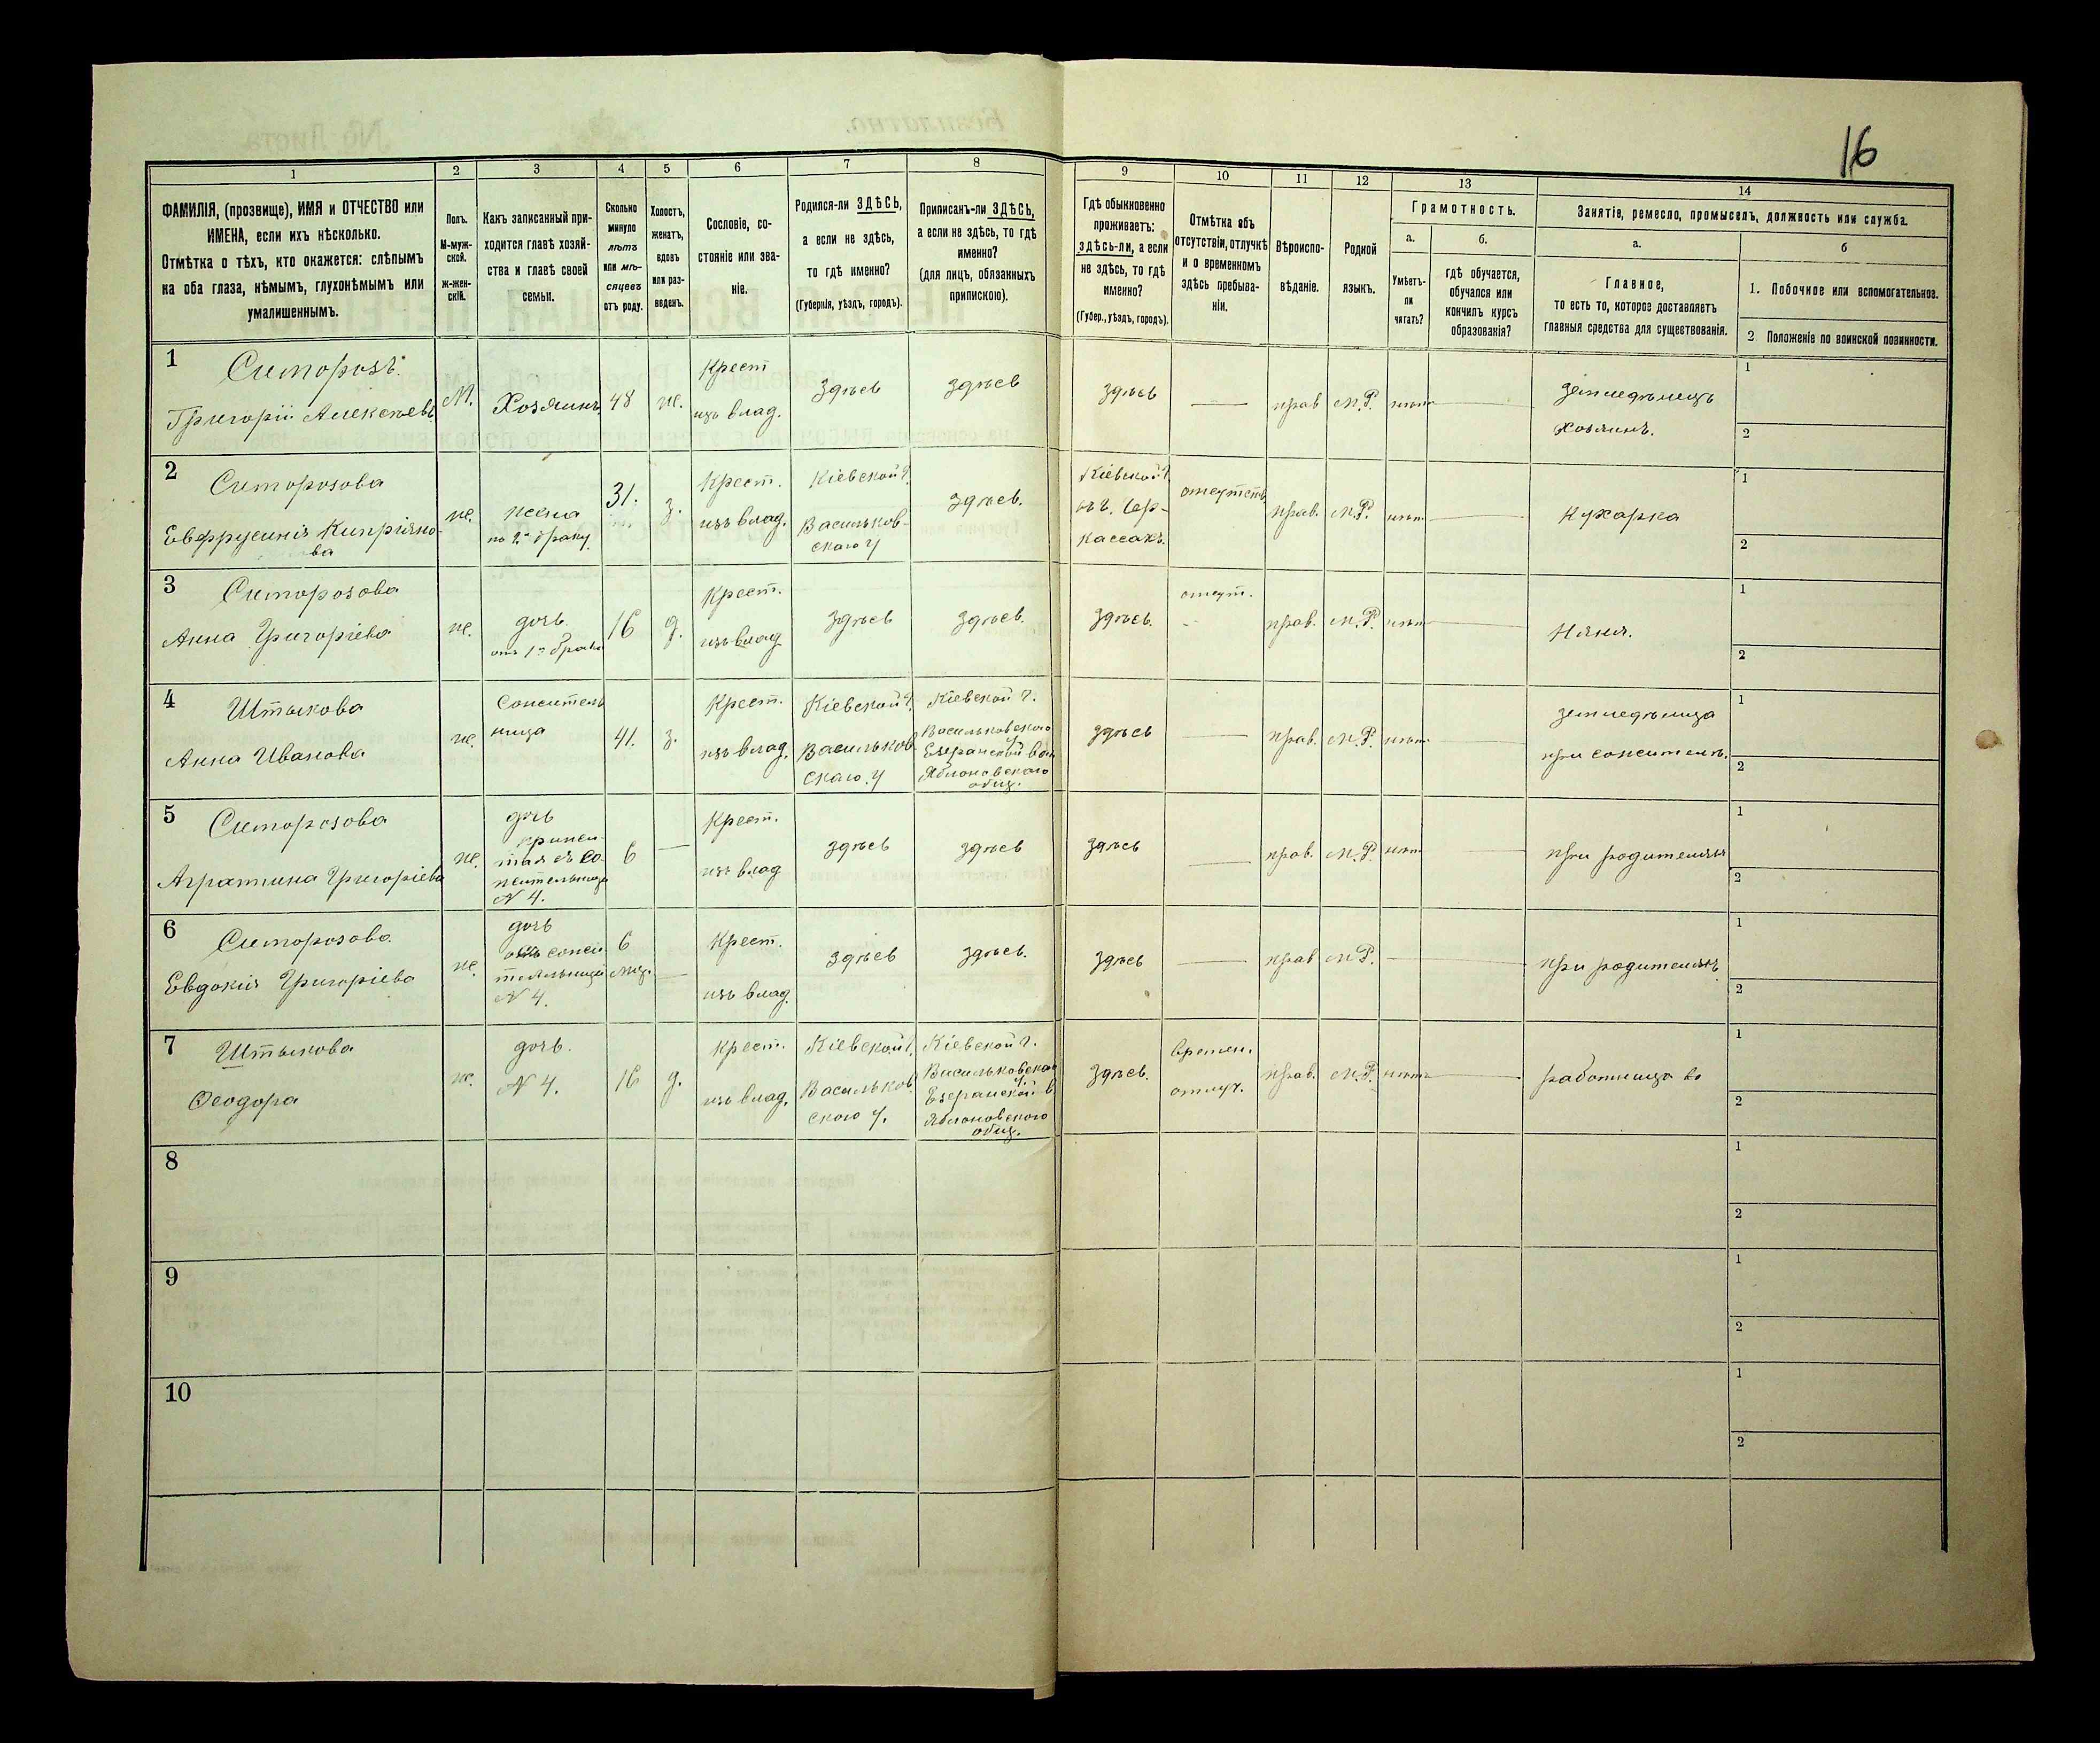 16
1
2
3
4
5
6
7
8
9
10
11
12
13
14
ФАМИЛІЯ, (прозвище), ИМЯ и ОТЧЕСТВО или
ИМЕНА, если ихъ нѣсколько.
Отмѣтка о тѣхъ, кто окажется: слѣпымъ
на оба глаза, нѣмымъ, глухонѣмымъ или
умалишеннымъ.
Полъ.
М-муж-
ской.
ж-жен-
скій.
Какъ записанный при-
ходится главѣ хозяй-
ства и главѣ своей
семьи.
Сколько
минуло
лѣтъ
или мѣ-
сяцевъ
отъ роду.
Холостъ,
женатъ,
вдовъ
или раз-
веденъ.
Сословіе, со-
стояніе или зва-
ніе.
Родился-ли ЗДѢСЬ,
а если не здѣсь,
то гдѣ именно?
(Губернія, уѣздъ, городъ).
Приписанъ-ли ЗДѢСЬ,
а если не здѣсь, то гдѣ
именно?
(для лицъ, обязанныхъ
припискою).
Гдѣ обыкновенно
проживаетъ:
здѣсь-ли, а если
не здѣсь, то гдѣ
именно?
(Губер., уѣздъ, городъ).
Отмѣтка объ
отсутствіи, отлучкѣ
и о временномъ
здѣсь пребыва-
ніи.
Вѣроиспо-
вѣданіе.
Родной
языкъ.
Грамотность.
а.
Умѣетъ-
ли
читать?
б.
гдѣ обучается,
обучался или
кончилъ курсъ
образованія?
Занятіе, ремесло, промыселъ, должность или служба.
а.
Главное,
то есть то, которое доставляетъ
главныя средства для существованія.
б
1. Побочное или вспомогательное.
2 Положеніе по воинской повинности.
1
Григорій Алексѣевъ
М.
Хозяинъ
48
ж.
Крест
изъ влад.
Здѣсь
Здѣсь
Здѣсь
—
прав
М.Р.
нѣтъ
земледѣлецъ
Хозяинъ.
1
2
2
Евфрусинія Кипріяно-
ва
ж.
жена
по 2му браку
31.
з.
Крест.
изъ влад.
Кіевской г.
Васильков-
скаго у
здѣсь.
Кіевской г.
въ г. Чер-
кассахъ.
отсутств.
прав.
М.Р.
нѣтъ
Кухарка
1
2
3
Анна Григоріева
ж.
дочь
отъ 1го брака
16
д.
Крест.
изъ влад
здѣсь
здѣсь.
здѣсь.
отсут.
прав.
М.Р.
нѣтъ
Няня.
1
2
4
Штыкова
Анна Иванова
ж.
Сожитель
ница
41.
з.
Крест.
изъ влад.
Кіевской г.
Васильков
скаго. у
Кіевской г.
Васильковскаго
у
Езеранской вол
Яблоновского
общ.
здѣсь
—
прав.
М.Р.
нѣтъ
земледѣлица
при сожителѣ.
1
2
5
Агрипина Григоріева
ж.
дочь
прижи-
тая съ со-
жительницей
N 4.
6
—
Крест.
изъ влад
здѣсь
здѣсь
здѣсь
—
прав.
М.Р.
нѣтъ
при родителяхъ
1
2
6
Евдокія Григоріева
ж.
дочь
N 4.
6
мѣц.
—
Крест.
изъ влад.
здѣсь
здѣсь.
здѣсь
—
прав
М.Р.
—
при родителяхъ
1
2
7
Штыкова
Ѳеодора
ж.
дочь.
N 4.
16
д.
Крест.
изъ влад.
Кіевской г.
Васильков
скаго у.
Кіевской г.
Васильковскаго
у.
Езеранской в
Яблоновского
общ.
здѣсь.
Времен.
отлуч.
прав.
М.Р.
нѣтъ
работница
1
2
8
1
2
9
1
2
10
1
2